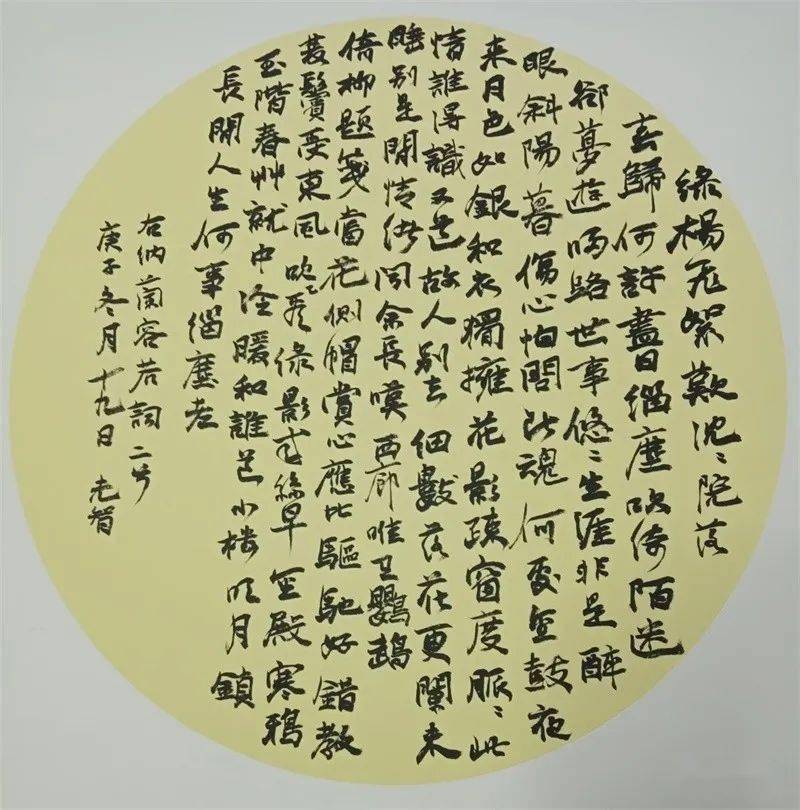 綠楊飛絮歎沈〻院落
春歸何許盡日緇塵吹綺陌迷
卻夢遊歸路世事悠〻生涯非是醉
眼斜陽暮傷心怕問斷魂何處金鼓夜
來月色如銀和衣獨擁花影疏窗度脈〻此
情誰得識又道故人別去細數落花更闌未
睡別是閒情緒聞余長嘆西廊唯有鸚鵡
倚柳題箋當花側帽賞心應比驅馳好錯教
雙鬢受東風吹看綠影成絲早金殿寒鴉
玉階春艸就中冷暖和誰道小樓明月鎮
長閒人生何事緇塵老
右納蘭容若詞二首
庚子冬月十九日 老智